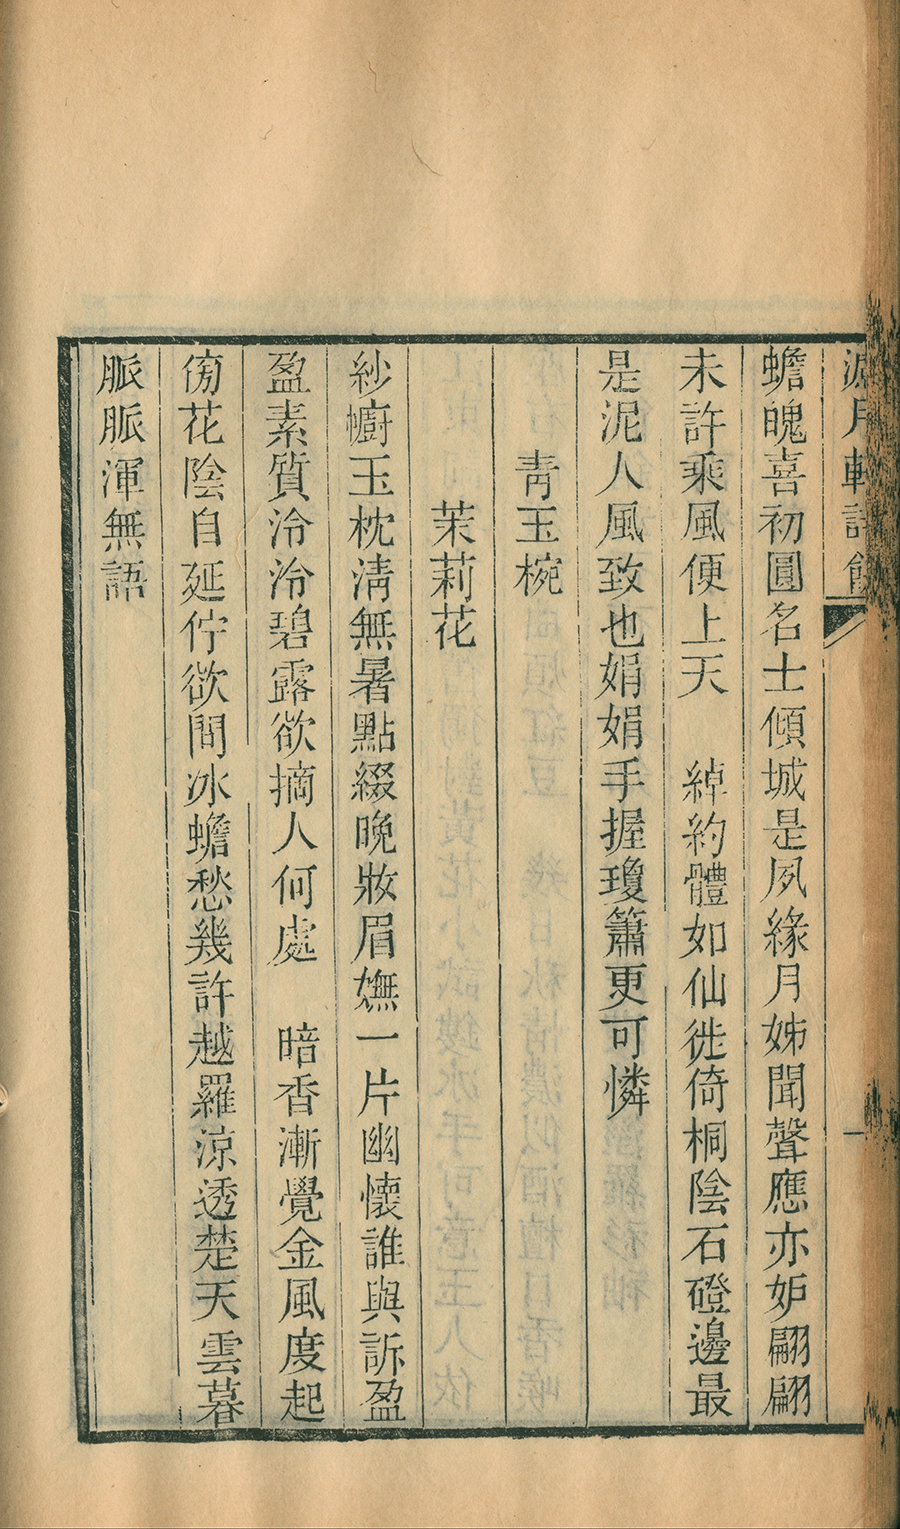 月軒詩餘
一
蟾魄喜初圓名士傾城是夙緣月姊聞聲應亦妒翩翩
未許乘風便上天　綽約體如仙徙倚桐陰石磴邊最
是泥人風致也娟娟手握瓊簫更可憐
青玉椀
茉莉花
紗幮玉枕淸無暑點綴晚妝眉嫵一片幽懷誰與訴盈
盈素質泠泠碧露欲摘人何處　暗香漸覺金風度起
傍花陰自延佇欲問冰蟾愁幾許越羅涼透楚天雲暮
脈脈渾無語